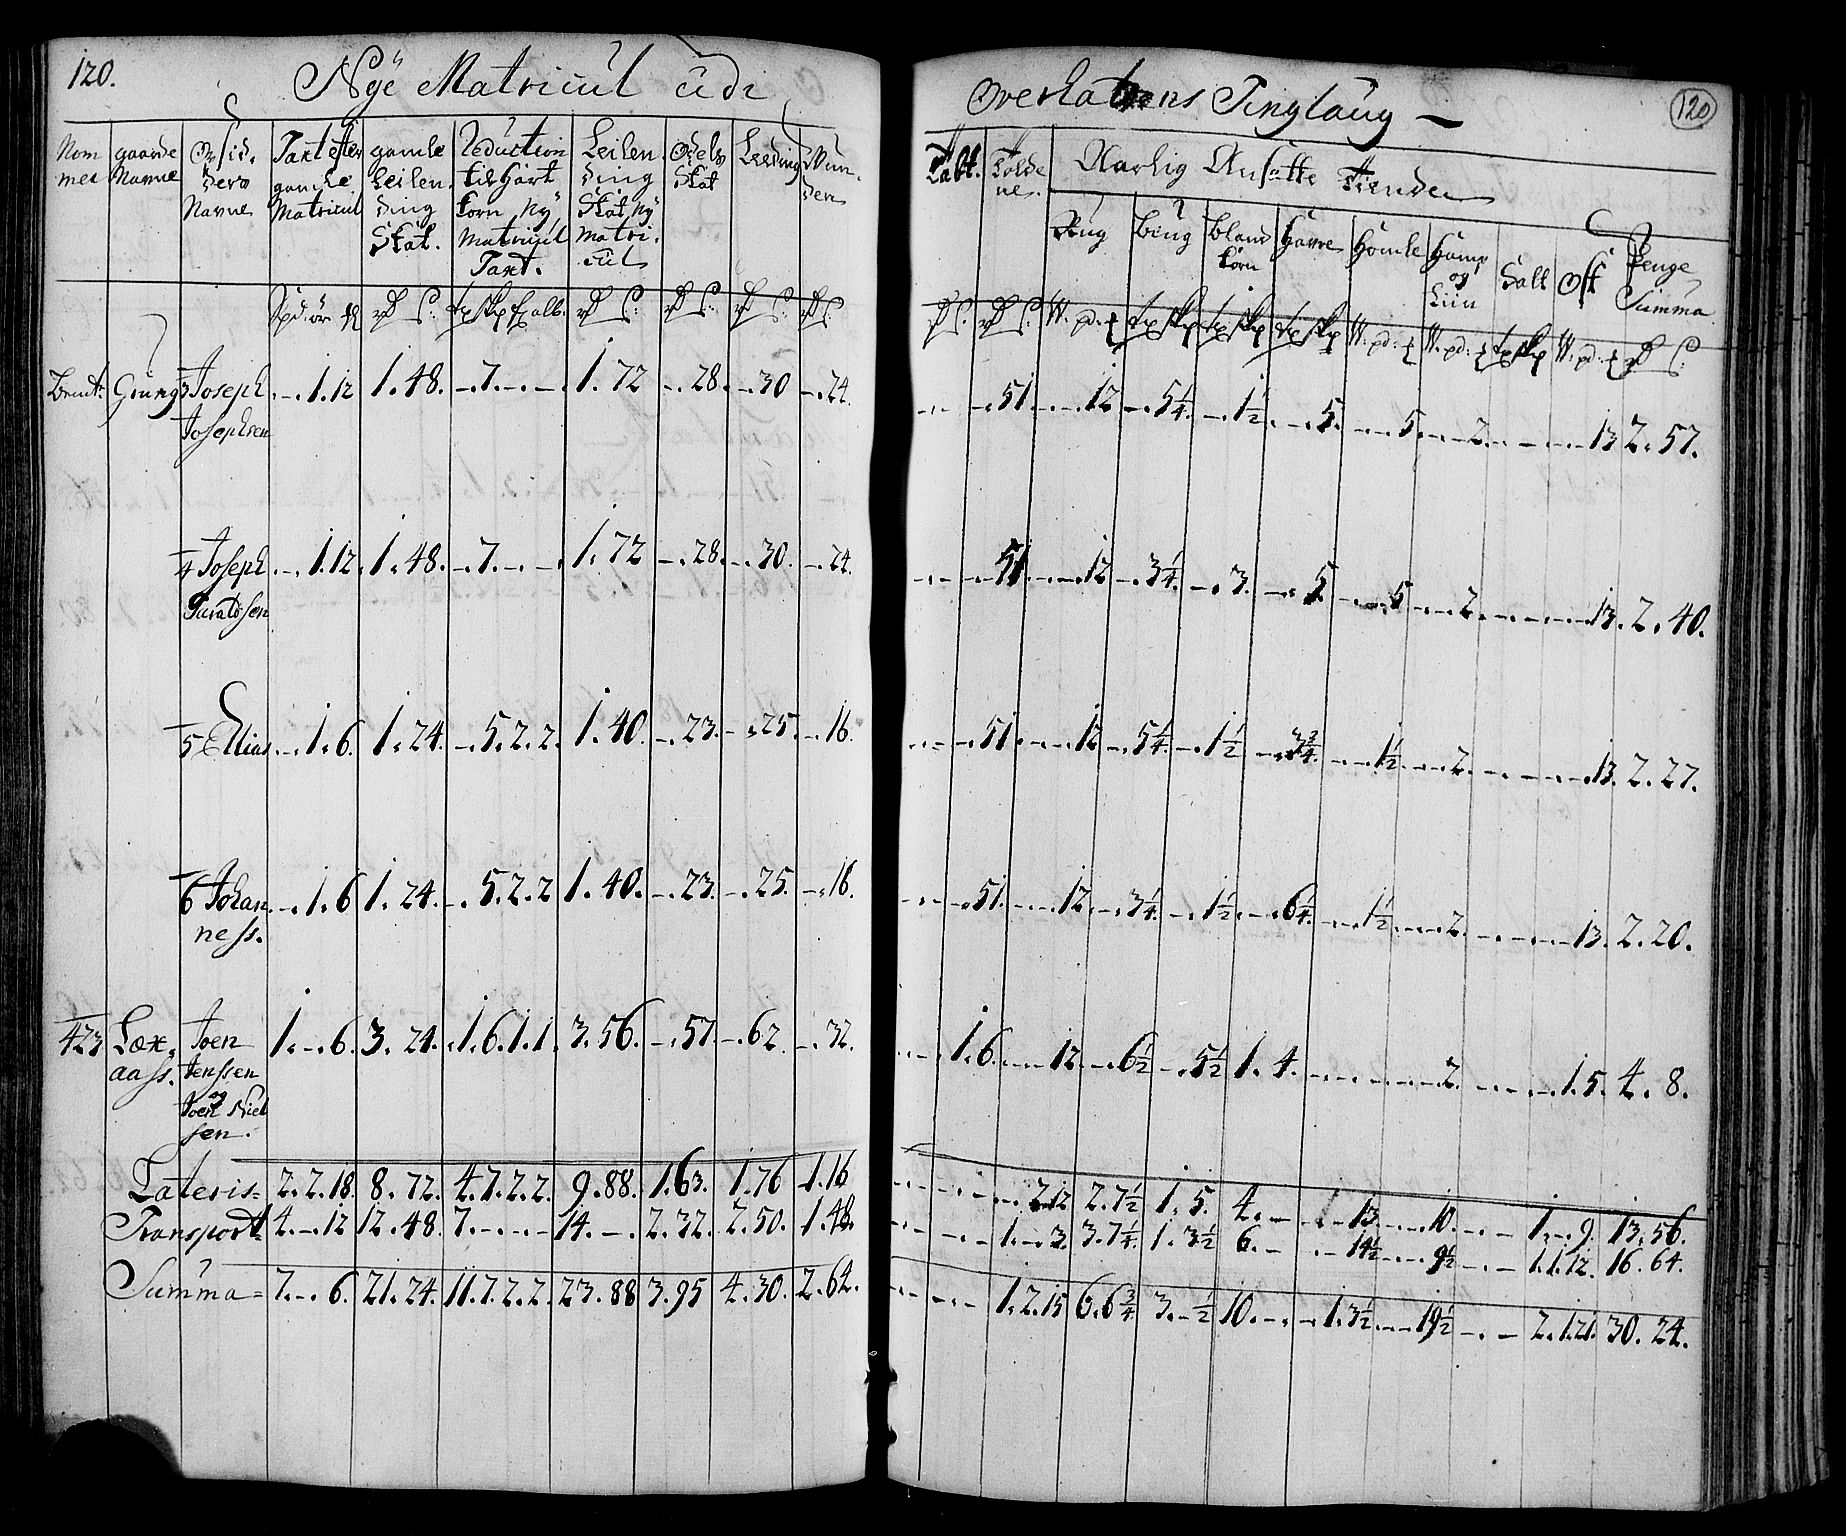 120. Nÿe Matricul udi
Overhalvens Tinglaug
120
Nom mer | gaarde Navne | Opsid. dere Navne | Taxt efter gamle Matricul | gamle Leilen. ding Skat. | Reduction til Hart korn nÿ Matricul Taxt. | Leilen ding Skat nÿ Matri. cul | Odels Skat | Leeding | Tolde ne. | Aarlig Ansatte Tiende
Rug | Biug | bland korn | Havre | Homle | Hamp og Liin | Salt | Ost | Penge Summa
Brut. Grung 3 Joseph Josephsen -.1.12 1.48. -.7.-.- 1.72 -.28. -.30 -.24. -.51. -.12 -.5¼. -.1½ -.5. -.5. -.2. -.13 2.57.
4 Joseph Taraldsen -.1.12. 1.48. -.7.-.- 1.72 -.28. -.30. -.24. -.51 -.12 -.3¼. -.3. -.5 -.5 -.2. -.13. 2.40.
5 Elias -.1.6. 1.24. -.5.2.2. 1.40. -.23. -.25. -.16. -.51. -.12 -.5¼. -.1½ -.3¾. -.1½. -.2. -.13. 2.27.
6 Johan ness. -.1.6 1.24. -.5.2.2 1.40. -.23. -.25. -.16. -.51. -.12. -.3¼. -.1½. -.6¼. -.1½. -.2. -.13. 2.20.
423 Lax. aass. Joen Jenssen og Joen Niel sen. 1.-.6. 3.24. 1.6.1.1. 3.56. -.57. -.62. -.32. 1.6. -.12 -.6½ -.5½ 1.4. -.2. -.1.5. 4.8.
Lateris= 2.2.18. 8.72. 4.7.2.2. 9.88. 1.63. 1.76 1.16 -.2.12 2.7½ 1.5. 4.- -.13. -.10. 1.-.9. 13.56.
Transport= 4.-.12 12.48. 7.-.-.- 14.-. 2.32. 2.50. 1.48. 1.-.3. 3.7¼. 1.3½ 6.- -.14½ -.9½ 1.1.12. 16.64.
Summa= 7.-.6. 21.24. 11.7.2.2. 23.88 3.95 4.30. 2.64. 1.2.15 6.6¾ 3.-½ 10.- 1.3½ -.19½ 2.1.21. 30.24.